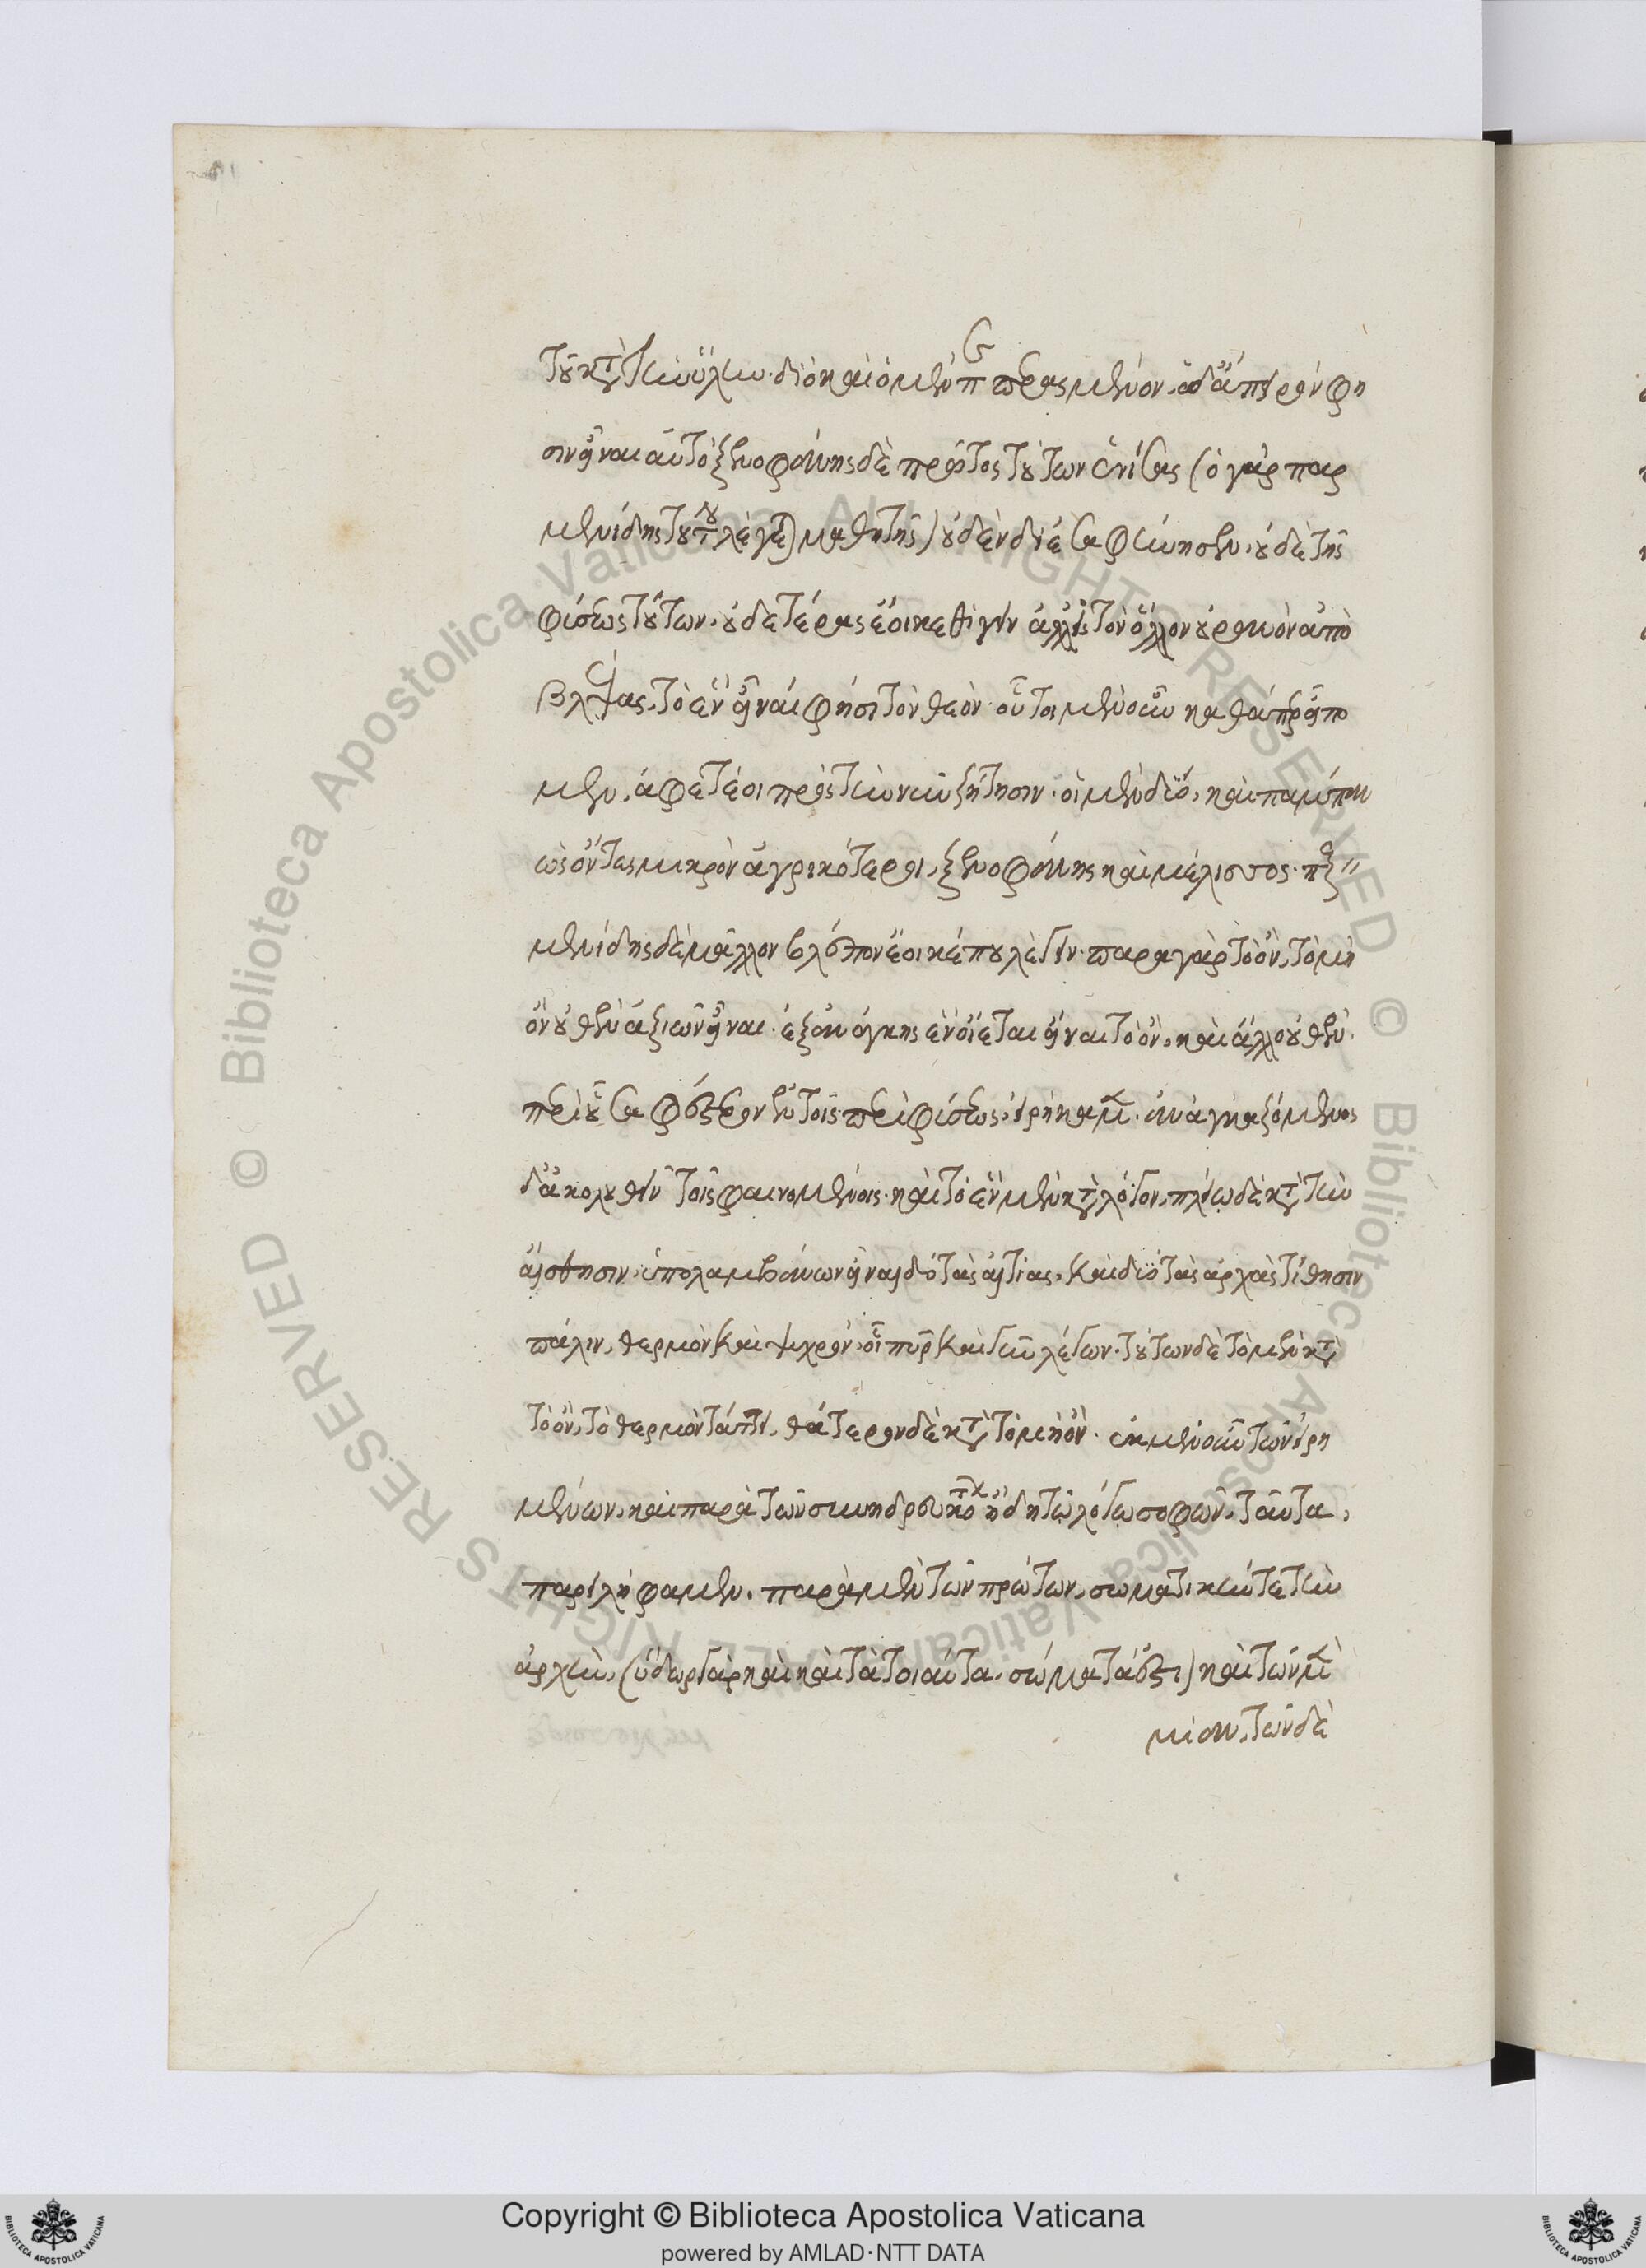 τοῦ κατὰ τὴν ὕλην· διὸ καὶ ὁ μὲν πεπερασμένον, ὁ δ' ἄπειρόν φη
σιν εἶναι αὐτό· ξενοφάνης δὲ πρῶτος τούτων ἑνίσας (ὁ γὰρ παρ
μενίδης τούτου λέγεται μαθητής) οὐδὲν διεσαφήνησεν· οὐδὲ τῆς
φύσεως τούτων οὐδετέρας ἔοικε θιγεῖν ἀλλ' εἰς τὸν ὅλον οὐρανὸν ἀπο
βλέψας, τὸ ἓν εἶναί φησι τὸν θεόν· οὗτοι μὲν οὖν καθάπερ εἴπο
μεν, ἀφετέοι πρὸς τὴν νῦν ζήτησιν· οἱ μὲν δύο, καὶ πάμπαν
ὡς ὄντες μικρὸν ἀγρικότεροι, ξενοφάνης καὶ μέλισσος· παρ
μενίδης δὲ μᾶλλον βλέπων ἔοικέ που λέγειν· παρὰ γὰρ τὸ ὄν, τὸ μὴ
ὂν οὐθὲν ἀξιῶν εἶναι· ἐξ ἀνάγκης ἓν οἴεται εἶναι τὸ ὄν, καὶ ἄλλο οὐθέν·
περὶ οὗ σαφέστερον ἐν τοῖς περὶ φύσεως εἰρήκαμεν· ἀναγκαζόμενος
δ' ἀκολουθεῖν τοῖς φαινομένοις· καὶ τὸ ἓν μὲν κατὰ λόγον, πλείω δὲ κατὰ τὴν
αἴσθησιν ὑπολαμβάνων εἶναι, δύο τὰς αἰτίας, καὶ δύο τὰς ἀρχὰς τίθησιν
πάλιν, θερμὸν καὶ ψυχρόν, οἷον πῦρ καὶ γῆν λέγων· τούτων δὲ τὸ μὲν κατὰ
τὸ ὄν, τὸ θερμὸν τάττει, θάτερον δὲ κατὰ τὸ μὴ ὄν· ἐκ μὲν οὖν τῶν εἰρη
μένων, καὶ παρὰ τῶν συνηδρευκότων ἤδη τῷ λόγῳ σοφῶν, ταῦτα
παρειλήφαμεν· παρὰ μὲν τῶν πρώτων, σωματικήν τε τὴν
ἀρχὴν, (ὕδωρ γὰρ καὶ καὶ τὰ τοιαῦτα, σώματά ἐστι) καὶ τῶν μὲν
μίαν, τῶν δὲ
Copyright © Biblioteca Apostolica Vaticana
powered by AMLAD·NTT DATA